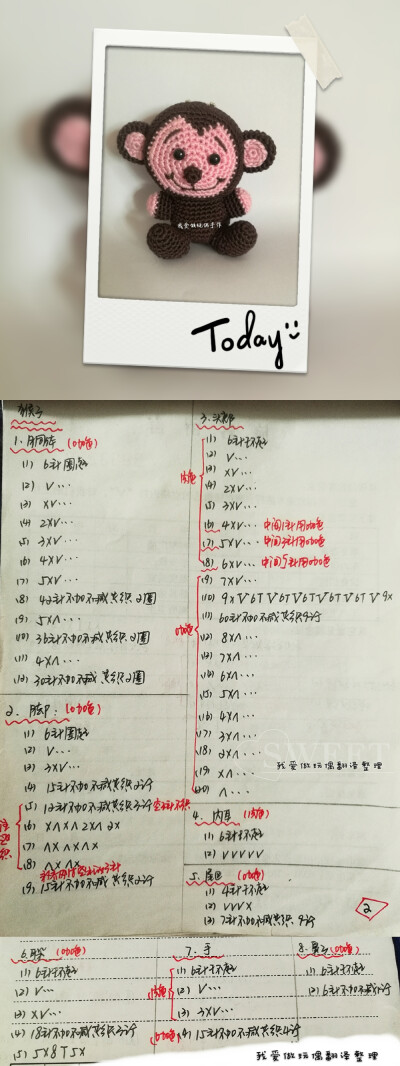 我爱做玩偶手作
Today
猴子
1、胴体 (咖色)
(1) 6针圈起
(2) V…
(3) XV…
(4) 2XV…
(5) 3XV…
(6) 4XV…
(7) 5XV…
(8) 42针不加不减共织2圈
(9) 5X∧…
(10) 36针不加不减共织2圈
(11) 4X∧…
(12) 30针不加不减共织2圈
2、脚: (咖色)
(1) 6针圈起
(2) V…
(3) 3XV…
(4) 15针不加不减共织2行
(5) 12针不加不减共织3行
(6) X∧X∧2X∧2X
(7) ∧X∧X∧X
(8) ∧X∧X
(9) 15针不加不减共织2行
3、头部
(1) 6针环起
(2) V…
(3) XV…
(4) 2XV…
(5) 3XV…
(6) 4XV… 中间1针用咖色
(7) 5XV… 中间3针用咖色
(8) 6XV… 中间5针用咖色
(9) 7XV…
(10) 9XV6TV6TV6TV6TV6TV9X
(11) 60针不加不减共织9行
(12) 8X∧…
(13) 7X∧…
(14) 6X∧…
(15) 5X∧…
(16) 4X∧…
(17) 3X∧…
(18) 2X∧…
(19) X∧…
(20) ∧…
SWEET
我爱做玩偶翻译整理
4、内耳 (肉色)
(1) 6针环起
(2) VVVVV
5、尾巴 (咖色)
(1) 4针环起
(2) VVVX
(3) 7针不加不减共织9行
2
6、耳朵 (咖色)
(1) 6针环起
(2) V…
(3) XV…
(4) 18针不加不减共织3行
(5) 5X8T5X
7、手
肉色
(1) 6针环起
(2) V…
(3) 3XV…
咖色 (4) 15针不加不减共织4行
8、鼻子 (咖色)
(1) 6针环起
(2) 6针不加不减
我爱做玩偶翻译整理